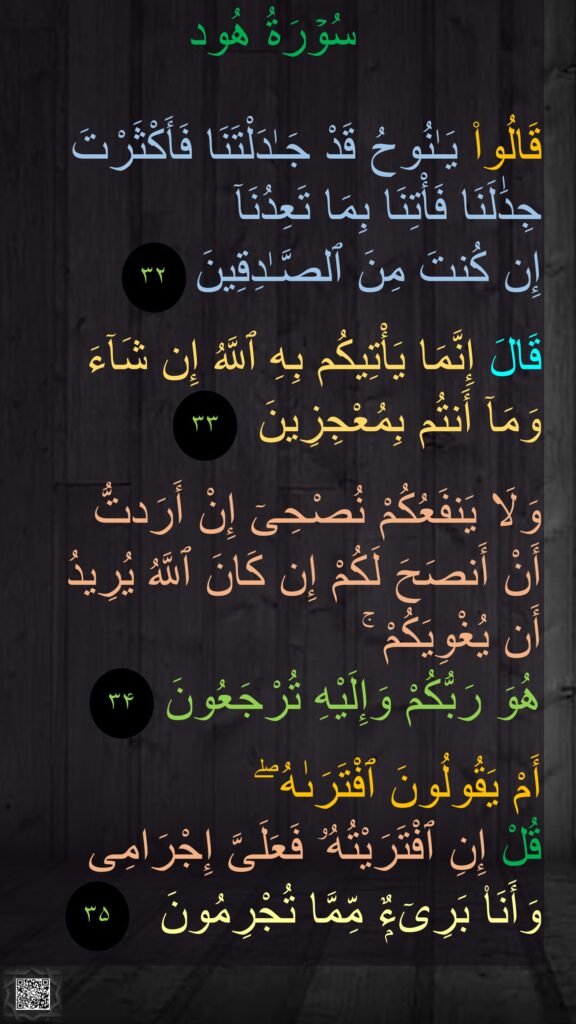 سُوۡرَةُ هُود
قَالُوا۟ يَـٰنُوحُ قَدْ جَـٰدَلْتَنَا فَأَكْثَرْتَ
جِدَٰلَنَا فَأْتِنَا بِمَا تَعِدُنَآ
إِن كُنتَ مِنَ ٱلصَّـٰدِقِينَ ٣٢
قَالَ إِنَّمَا يَأْتِيكُم بِهِ ٱللَّهُ إِن شَآءَ
وَمَآ أَنتُم بِمُعْجِزِينَ ٣٣
وَلَا يَنفَعُكُمْ نُصْحِىٓ إِنْ أَرَدتُّ
أَنْ أَنصَحَ لَكُمْ إِن كَانَ ٱللَّهُ يُرِيدُ
أَن يُغْوِيَكُمْ ۚ
هُوَ رَبُّكُمْ وَإِلَيْهِ تُرْجَعُونَ ۳۴
أَمْ يَقُولُونَ ٱفْتَرَىٰهُ ۖ
قُلْ إِنِ ٱفْتَرَيْتُهُۥ فَعَلَىَّ إِجْرَامِى
وَأَنَا۠ بَرِىٓءٌۭ مِّمَّا تُجْرِمُونَ ۳۵